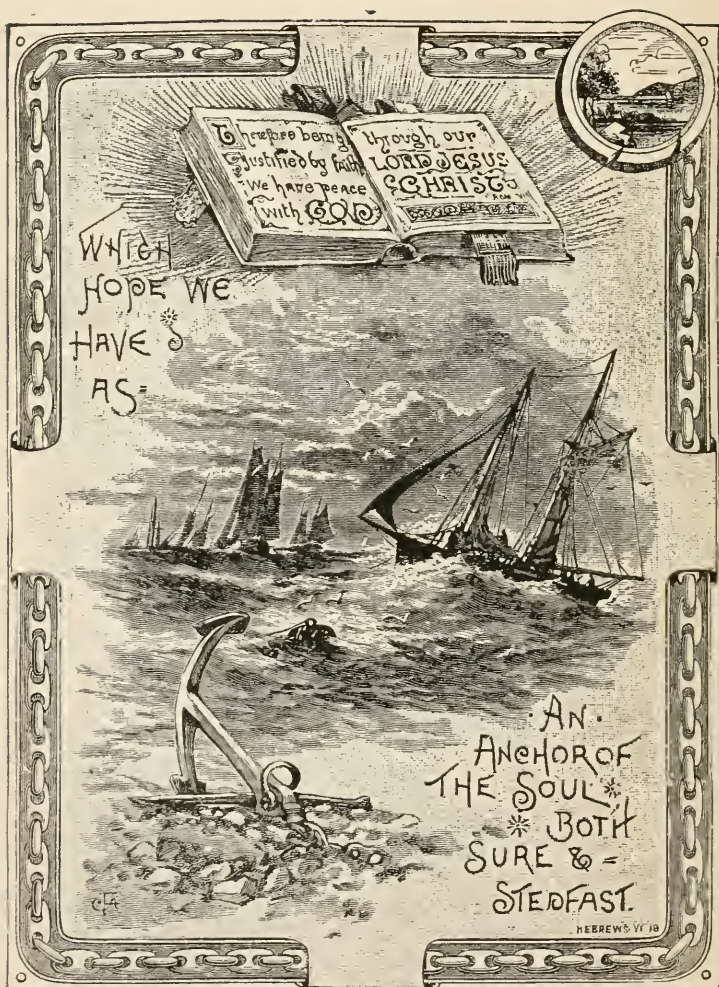 Therefore being
Justified by faith
we have peace
with GOD
through our
LORD JESUS
CHRIST
WHICH
HOPE WE
HAVE
AS=
·AN·
ANCHOR OF
THE SOUL
BOTH
SURE & =
STEDFAST.
HEBREWS VI 18
CFA